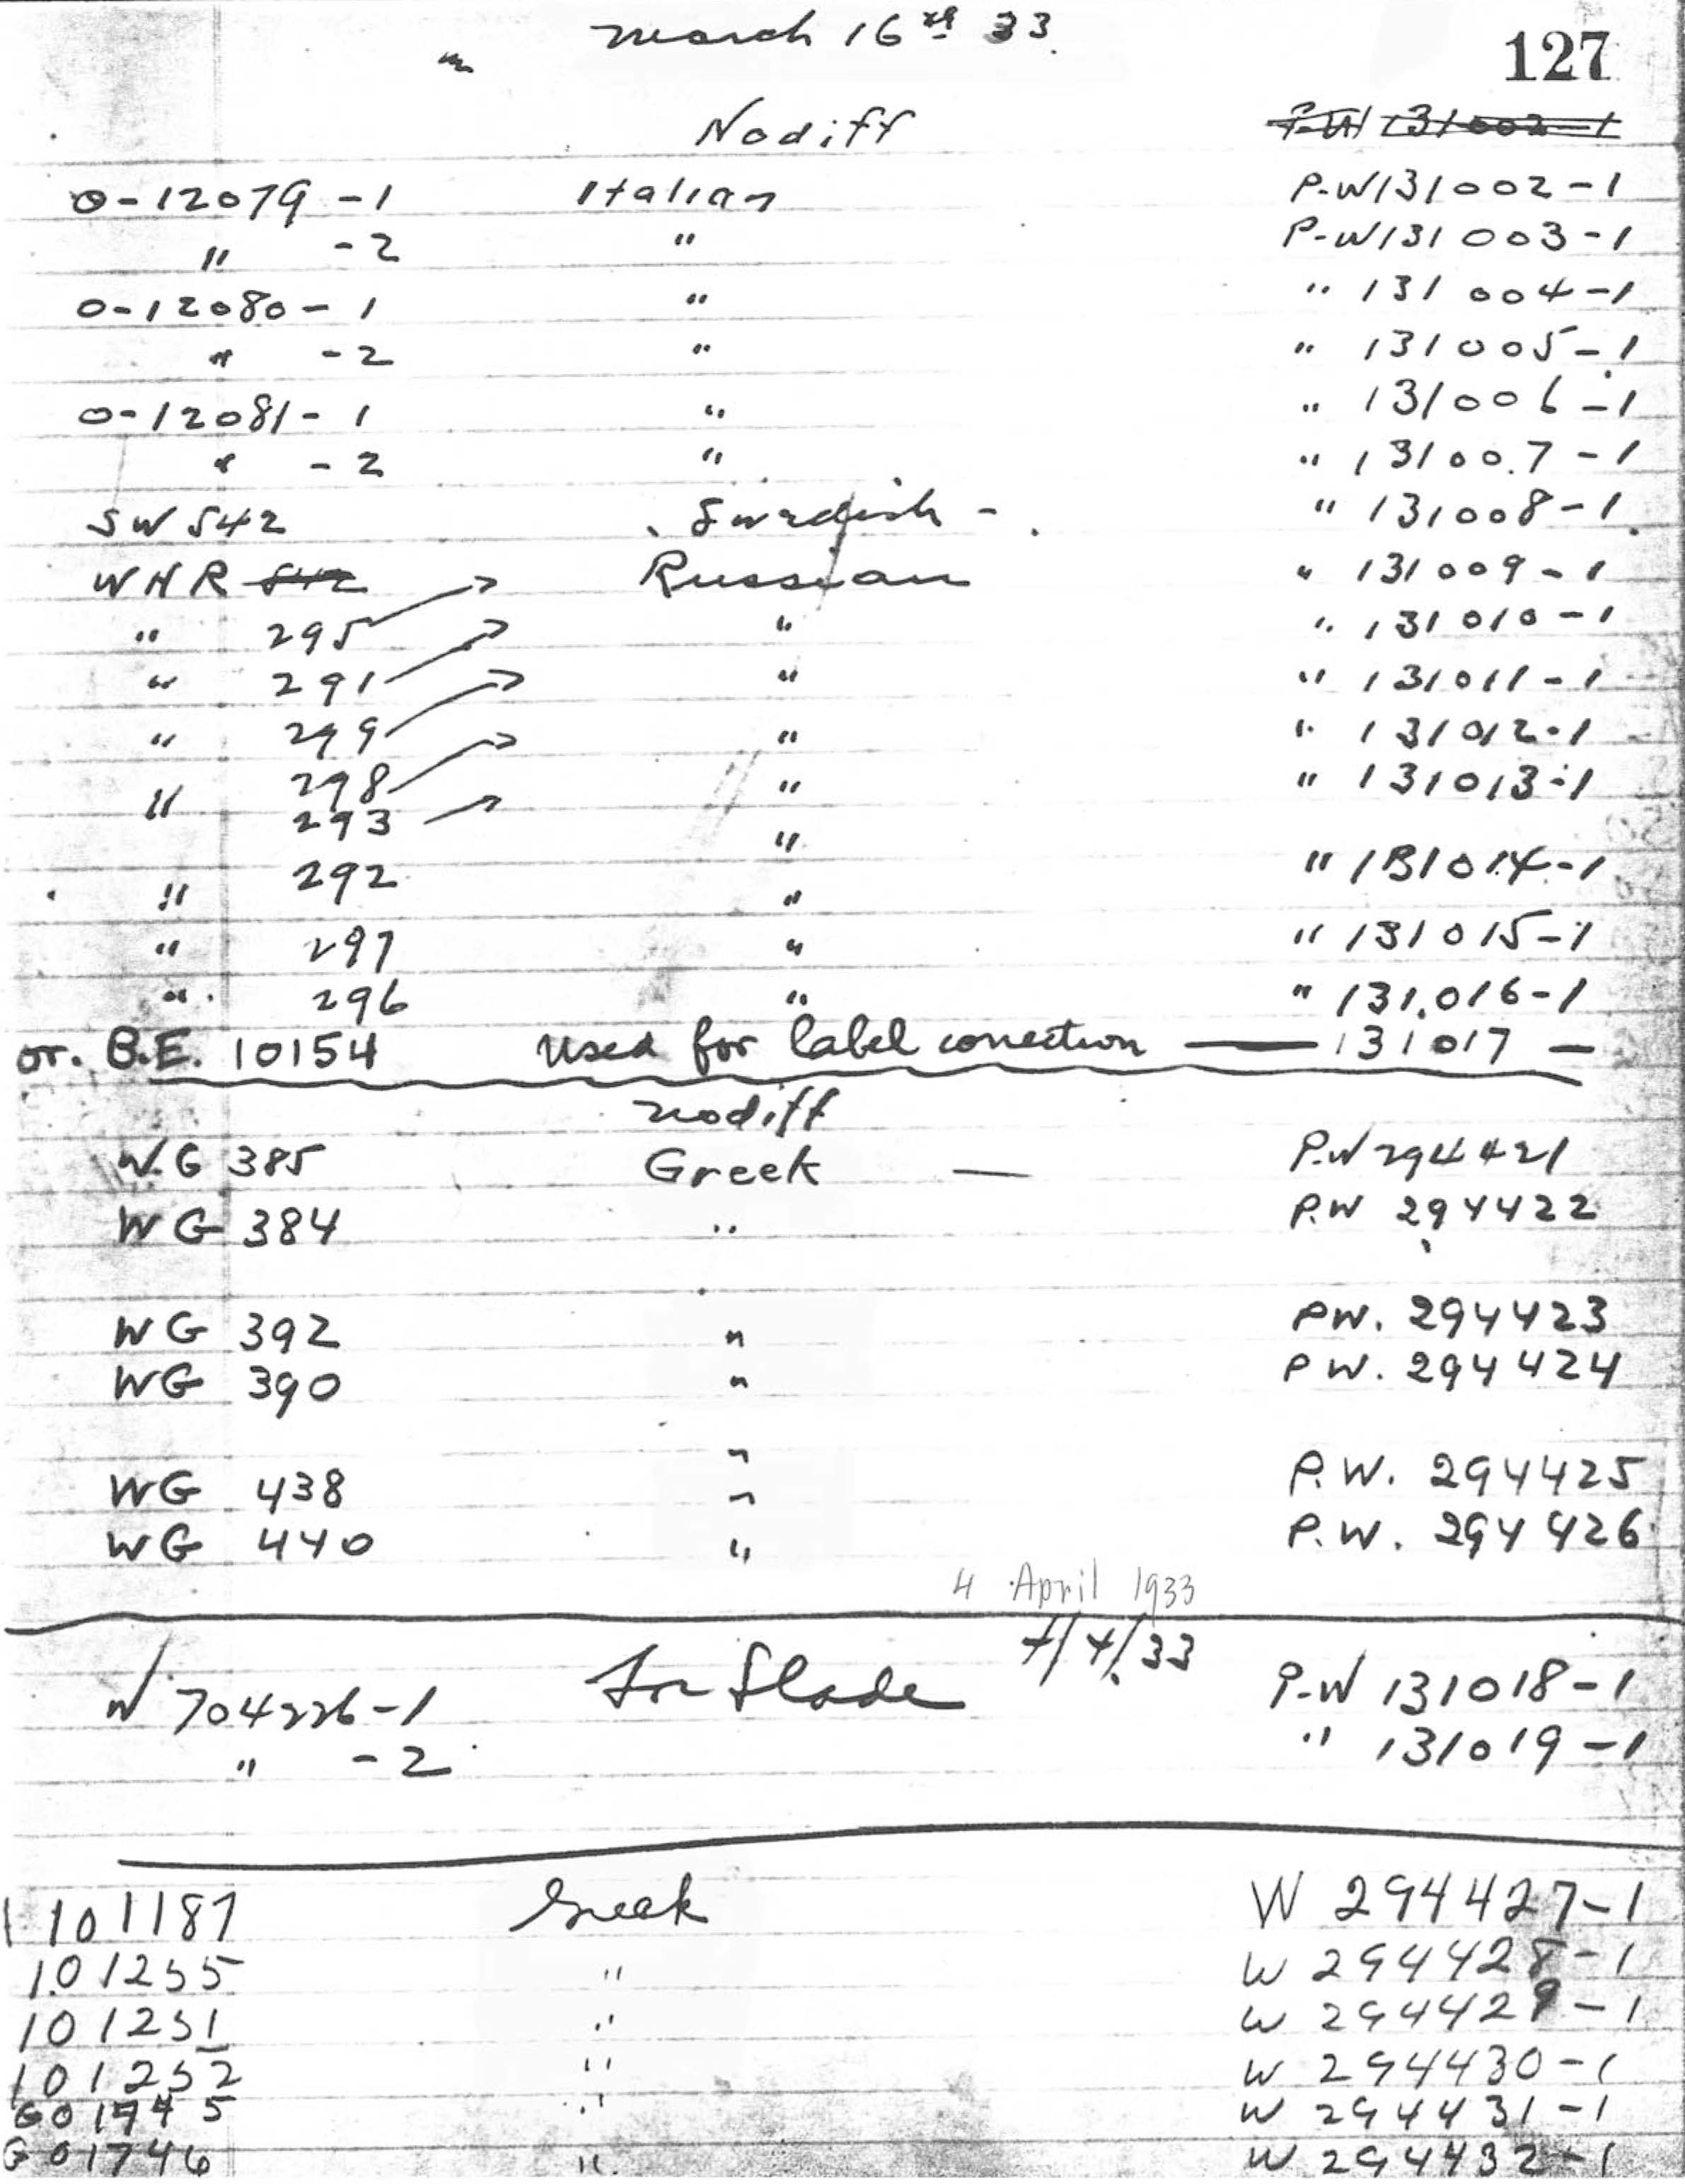 March 16th 33
127
Nodiff P-W 131002-1
0-12079-1 Italian P-W131002-1
" -2 " P-W131003-1
0-12080-1 " " 131004-1
" -2 " " 131005-1
0-12081-1 " " 131006-1
" -2 " " 131007-1
SW 542 Swedish - " 131008-1
WNR 542 Russian " 131009-1
" 295 " " 131010-1
" 291 " " 131011-1
" 299 " " 131012-1
" 298 " " 131013-1
293 "
" 292 " " 131014-1
" 297 " " 131015-1
" 296 " " 131016-1
or. B.E. 10154 Used for label correction — 131017 —
Nodiff
W.G 385 Greek — P.W 294421
WG 384 " P.W 294422
WG 392 " PW. 294423
WG 390 " PW. 294424
"
WG 438 " P.W. 294425
WG 440 " P.W. 294426
4 April 1933
4/4/33
W 704226-1 For Slade P-W 131018-1
" -2 " 131019-1
101187 Greek W 294427-1
101255 " W 294428-1
101251 " W 294429-1
101252 " W 294430-1
G01745 " W 294431-1
G01746 " W 294432-1